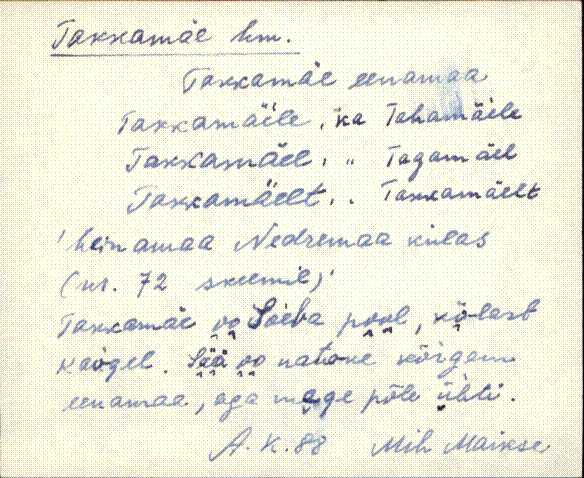 Takkamäe hm.
Takkamäe eenamaa
Takkamäele, ka Tahamäele
Takkamäel, " Tagamäel
Takkamäelt, " Takkamäelt
'heinamaa Nedremaa külas
(nr. 72 skeemil)'
Takkamäe oo Sõeba pool, kõlast
kaogel. Sää oo natoke kõigem
eenamaa, aga mage põle ühti.
A. K. 88 Mih Maikse